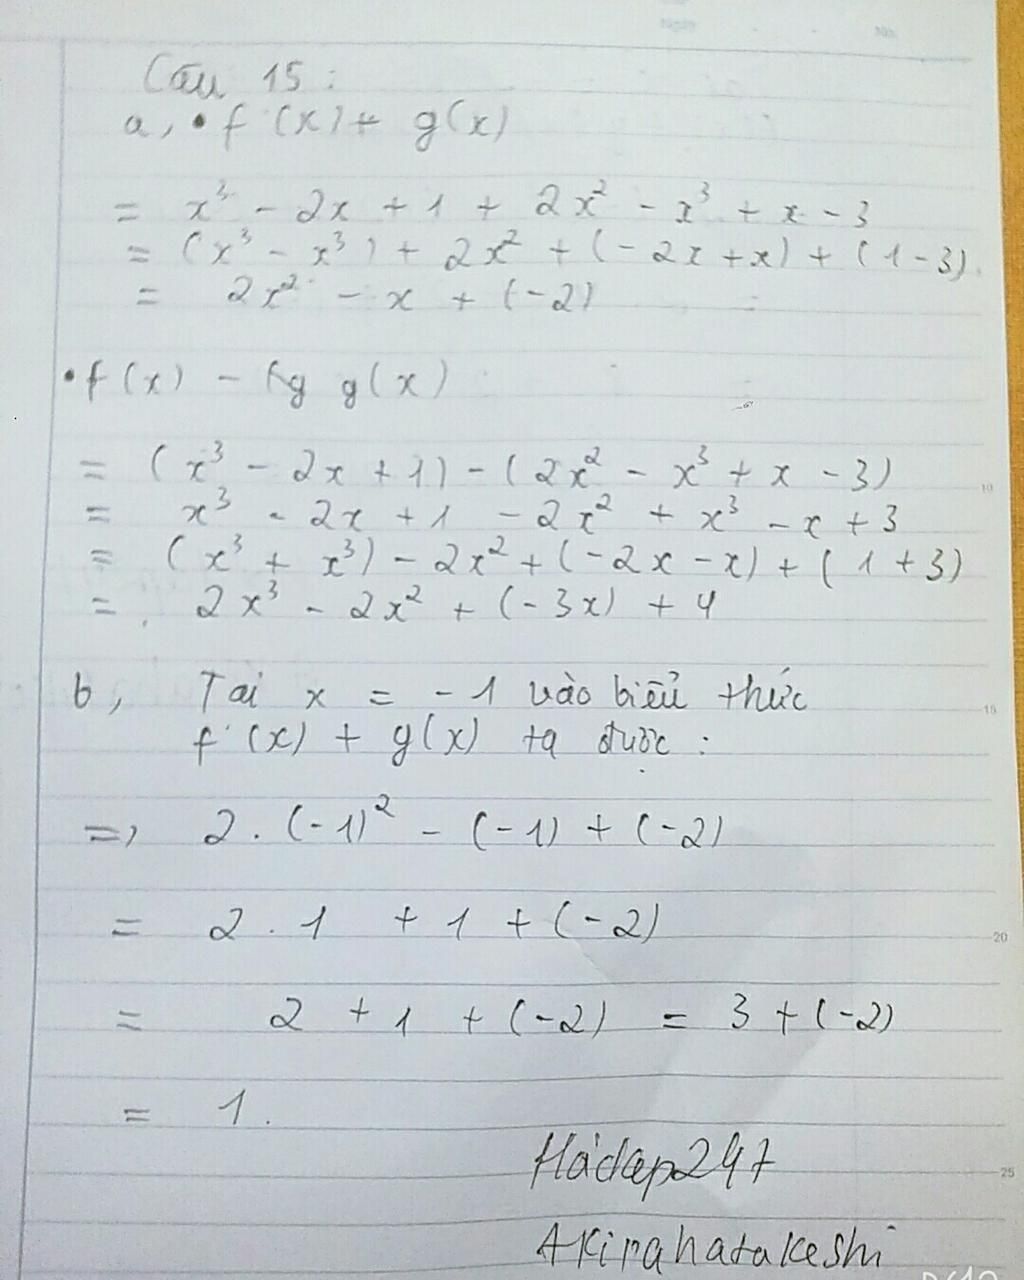 Câu 15:
a, • f(x) + g(x)
= x³ - 2x + 1 + 2x² - x³ + x - 3
= (x³ - x³) + 2x² + (-2x + x) + (1 - 3).
= 2x² - x + (-2)
• f(x) - g(x)
= (x³ - 2x + 1) - (2x² - x³ + x - 3)
= x³ - 2x + 1 - 2x² + x³ - x + 3
= (x³ + x³) - 2x² + (-2x - x) + (1 + 3)
= 2x³ - 2x² + (-3x) + 4
b, Tại x = -1 vào biểu thức
f(x) + g(x) ta được:
=> 2 . (-1)² - (-1) + (-2)
= 2 . 1 + 1 + (-2)
= 2 + 1 + (-2) = 3 + (-2)
= 1.
Hỏidap247
Akirahatakeshi
10
15
20
25